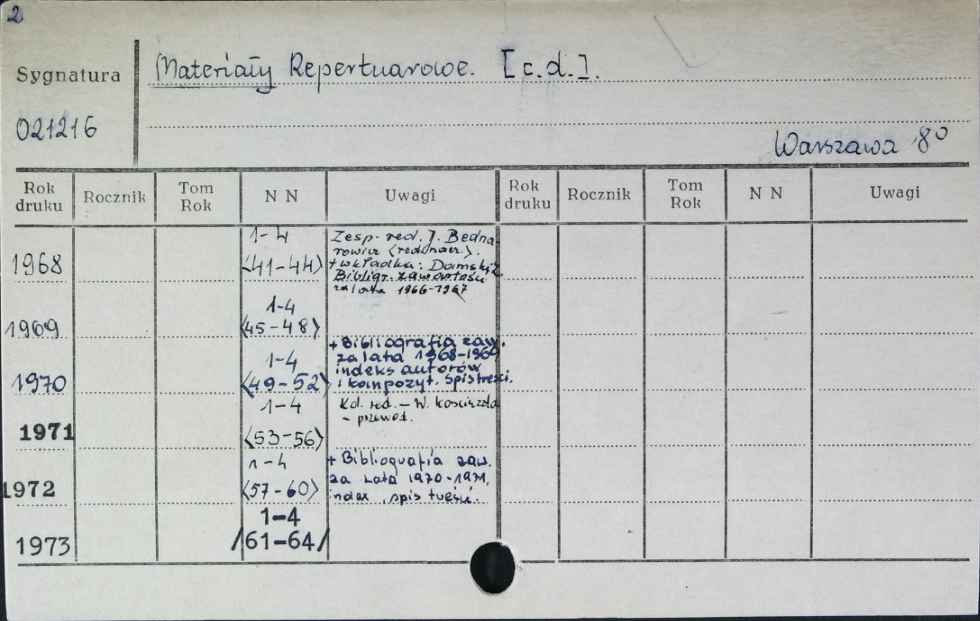 2
Sygnatura
Materiały Repertuarowe. [c.d.].
021216
Warszawa 8º
Rok druku Rocznik Tom Rok N N Uwagi Rok druku Rocznik Tom Rok N N Uwagi
1968 1-4
<41-44>
Zesp. red. J. Bedna
rowicz <red. nacz.>.
+ wkładka:
Bibliogr. zawartości
za lata 1966-1967
1969 1-4
<45-48>
1970 1-4
<49-52>
+ Bibliografia zaw.
za lata 1968-1969
indeks autorów
i kompozyt. spis treści.
1971 1-4
<53-56>
Kol. red. - W.
- przewod.
1972 1-4
<57-60>
+ Bibliografia zaw.
za lata 1970-1971,
index, spis treści.
1973 1-4
/61-64/